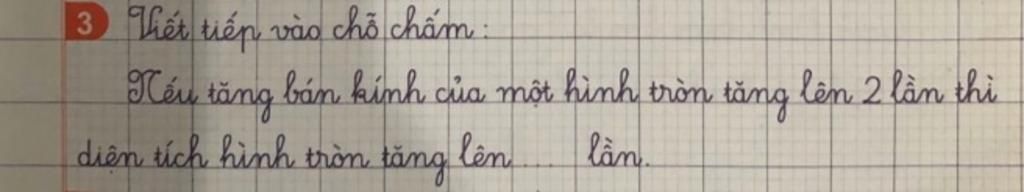 3 Viết tiếp vào chỗ chấm:
Nếu tăng bán kính của một hình tròn tăng lên 2 lần thì
diện tích hình tròn tăng lên .... lần.